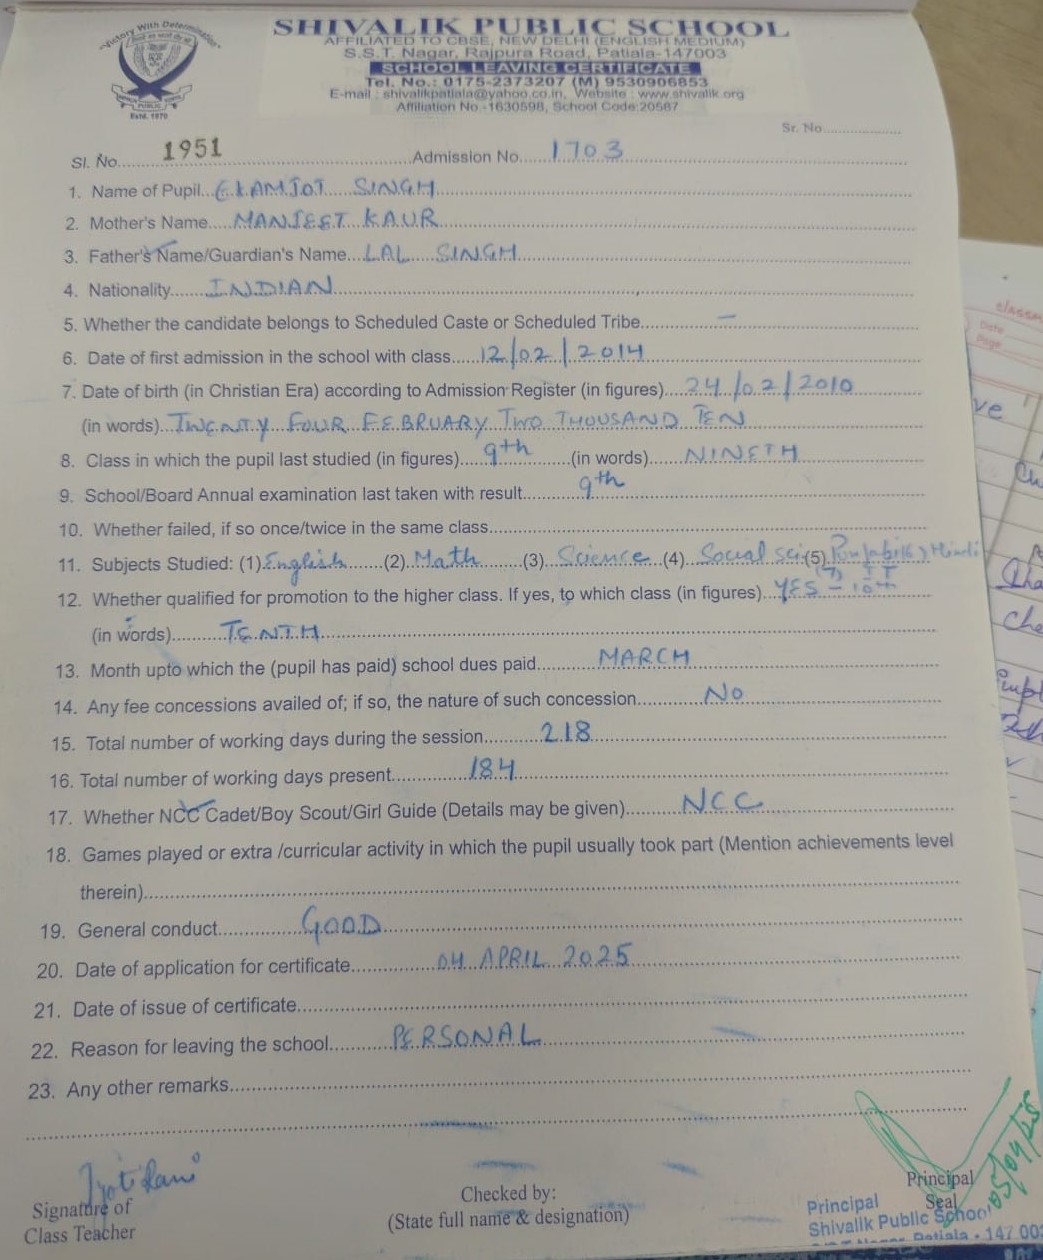 "Victory With Determination"
Estd. 1970
SHIVALIK PUBLIC SCHOOL
AFFILIATED TO CBSE, NEW DELHI (ENGLISH MEDIUM)
S.S.T. Nagar, Rajpura Road, Patiala-147003
SCHOOL LEAVING CERTIFICATE
Tel. No.: 0175-2373207 (M) 9530906853
E-mail : shivalikpatiala@yahoo.co.in, Website : www.shivalik.org
Affiliation No.-1630598, School Code:20587
Sr. No.
Sl. No. 1951 Admission No. 1703
1. Name of Pupil EKAMJOT SINGH
2. Mother's Name MANJEET KAUR
3. Father's Name/Guardian's Name LAL SINGH
4. Nationality INDIAN
5. Whether the candidate belongs to Scheduled Caste or Scheduled Tribe —
6. Date of first admission in the school with class 12/02/2014
7. Date of birth (in Christian Era) according to Admission Register (in figures) 24/02/2010
(in words) TWENTY FOUR FEBRUARY TWO THOUSAND TEN
8. Class in which the pupil last studied (in figures) 9th (in words) NINETH
9. School/Board Annual examination last taken with result 9th
10. Whether failed, if so once/twice in the same class
11. Subjects Studied: (1) English (2) Math (3) Science (4) Social sci (5) Punjabi (6) Hindi
(7) IT
12. Whether qualified for promotion to the higher class. If yes, to which class (in figures) YES - 10th
(in words) TENTH
13. Month upto which the (pupil has paid) school dues paid MARCH
14. Any fee concessions availed of; if so, the nature of such concession NO
15. Total number of working days during the session 218
16. Total number of working days present 184
17. Whether NCC Cadet/Boy Scout/Girl Guide (Details may be given) NCC
18. Games played or extra /curricular activity in which the pupil usually took part (Mention achievements level
therein)
19. General conduct GOOD
20. Date of application for certificate 04 APRIL 2025
21. Date of issue of certificate
22. Reason for leaving the school PERSONAL
23. Any other remarks
Jyoti Rani
Signature of
Class Teacher
Checked by:
(State full name & designation)
05/04/25
Principal
Seal
Principal
Shivalik Public School
Nagar, Patiala - 147 003